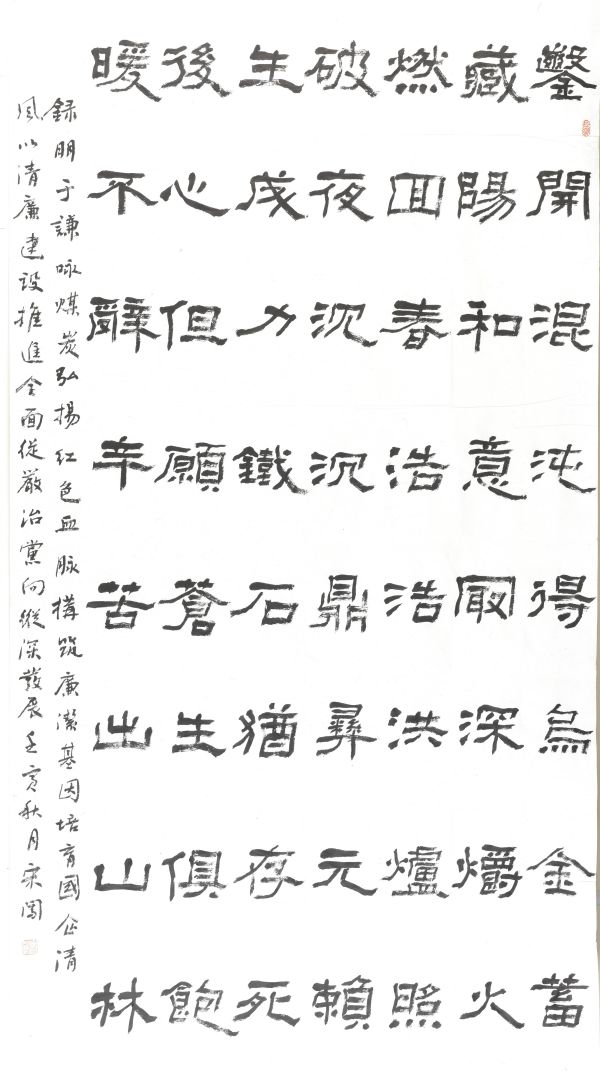 鑿開混沌得烏金蓄
藏陽和意冣深爝火
燃囬春浩浩洪爐照
破夜沉沉鼎彝元賴
生成力鐵石猶存死
後心但願蒼生俱飽
暖不辭辛苦出山林
録明于謙咏煤炭弘揚紅色血脉構筑廉潔基因培育國企清
風以清廉建設推進全面從嚴治黨向縱深發展壬寅秋月宋闖